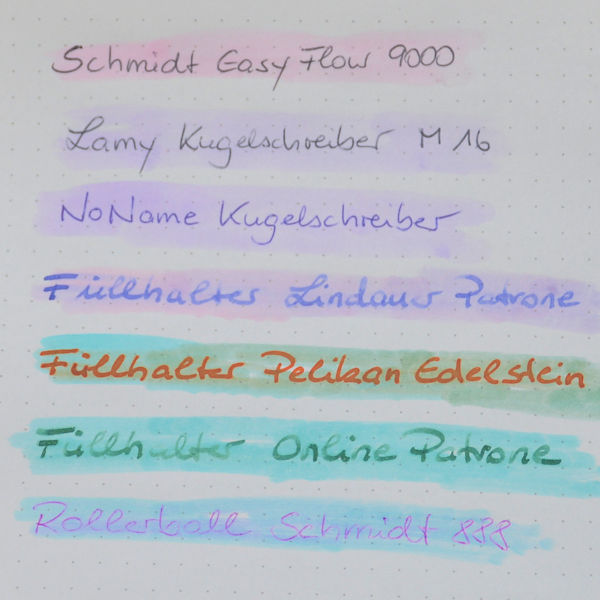 Schmidt Easy Flow 9000
Lamy Kugelschreiber M 16
NoName Kugelschreiber
Füllhalter Lindauer Patrone
Füllhalter Pelikan Edelstein
Füllhalter Online Patrone
Rollerball Schmidt 888